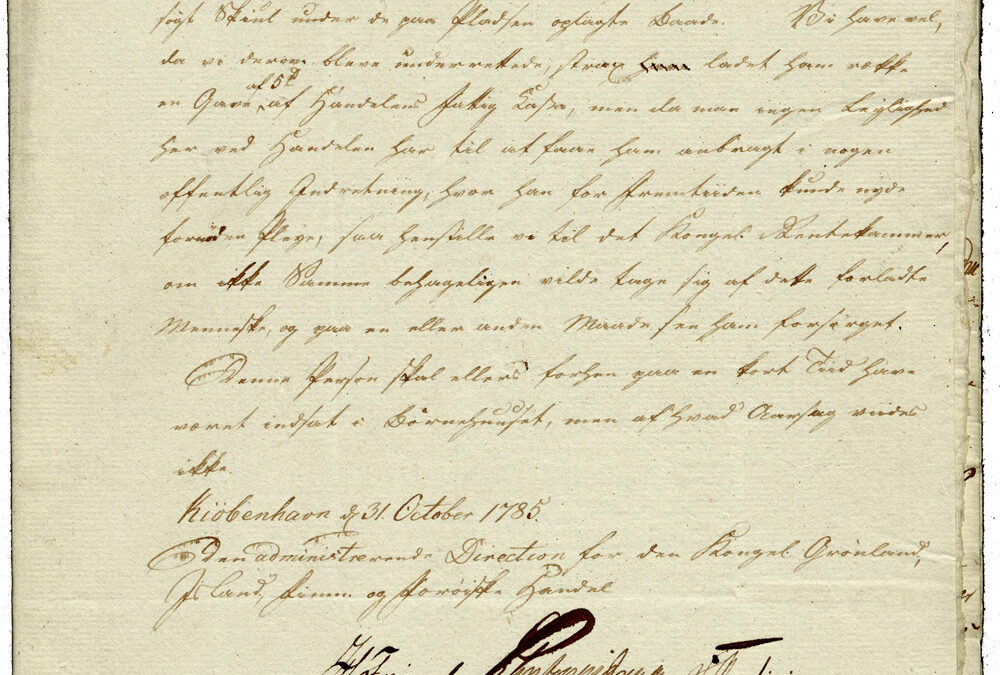 søgt Skiul under de paa Pladsen oplagte Baade. Vi have vel,
da vi derom bleve underrettede, strax ham ladet ham række
en Gave af 5 rd af Handelens Fattig Cassa, men da man ingen Leylighed
her ved Handelen har til at faae ham anbragt i nogen
offentlig Indretning, hvor han for Fremtiden kunde nyde
fornøden Pleye, saa henstille vi til det Kongel. Rentekammer,
om ikke Samme behageligen vilde tage sig af dette forladte
Menneske, og paa en eller anden Maade see ham forsørget.
Denne Person skal ellers forhen paa en kort Tiid have
været indsat i Børnehuuset, men af hvad Aarsag viides
ikke.
Kiöbenhavn d. 31. October 1785.
Den administrerende Direction for den Kongel. Grønland,
Island, Finm. og Færøiske Handel